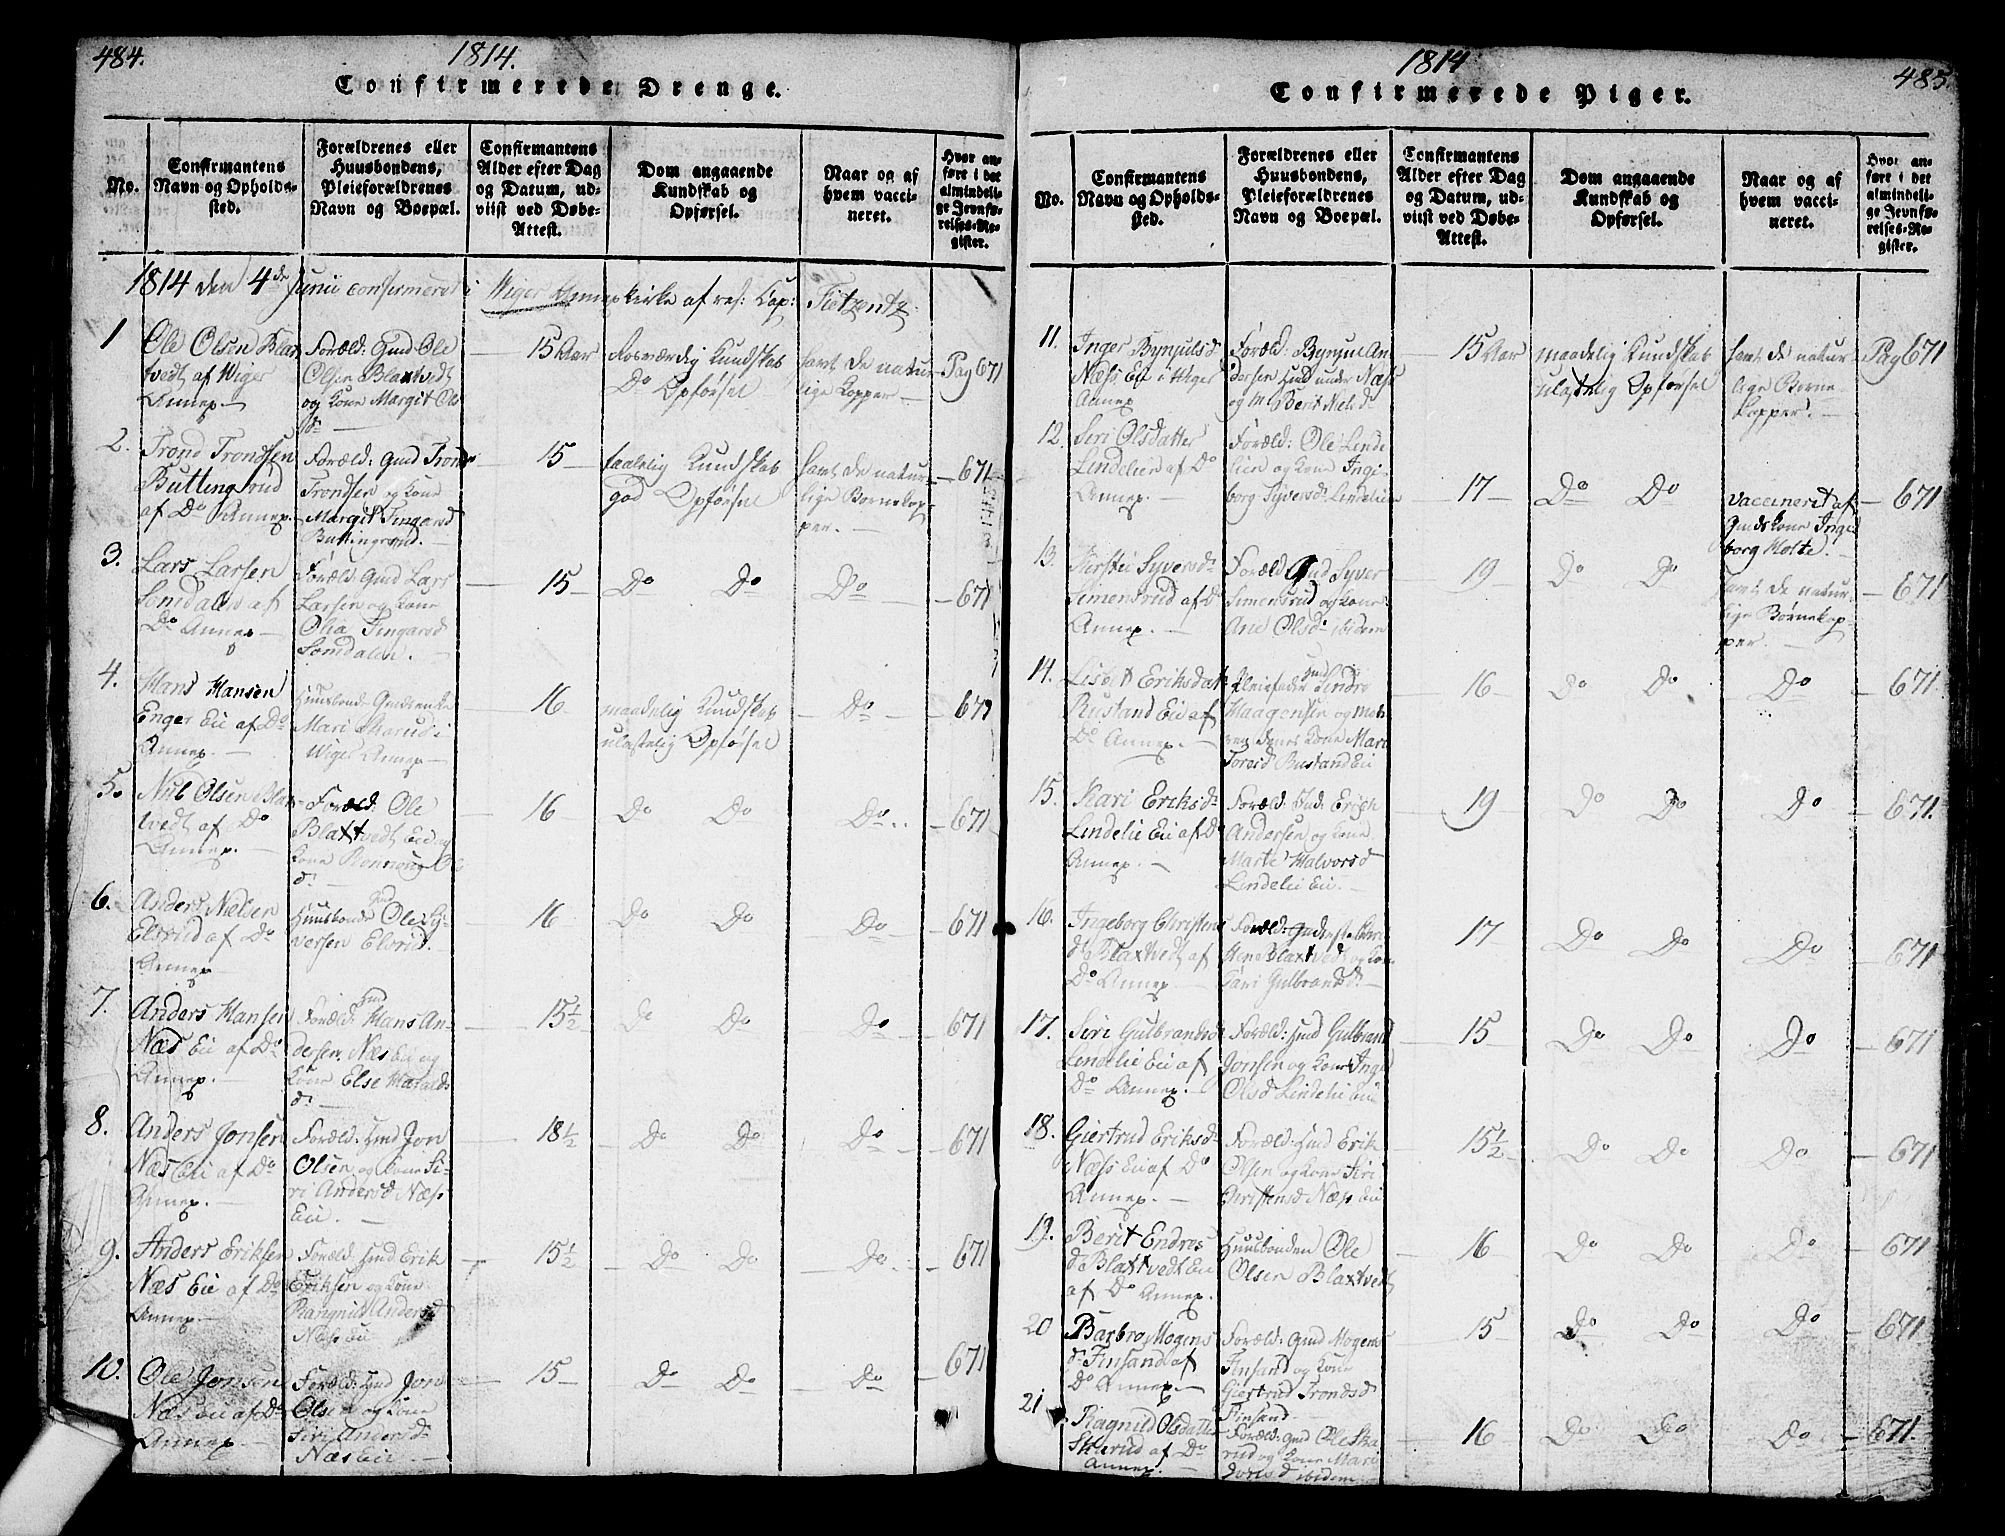 484.
1814.
Confirmerede Drenge.
No.
Confirmantens Navn og Opholds-sted.
Forældrenes eller Huusbondens, Pleieforældrenes Navn og Boepæl.
Confirmantens Alder efter Dag og Datum, ud-viist ved Døbe-Attest.
Dom angaaende Kundskab og Opførsel.
Naar og af hvem vacci-neret.
Hvor an-føre i det almindeli-ge Jevnfø-relses-Re-gister.
1814 den 4de Junii confirmeret i Wiger Annexkirke af res: Cap: Tietzentz
1
Ole Olsen Blax
tvedt af Wiger
Annex.
Foræld: Gmd Ole
Olsen Blaxtvedt
og Kone Margit Ols
dr
15 Aar
Rosværdig Kundskab
Do Opførsel
havt de natur
lige Kopper
Pag 671
2.
Trond Trondsen
Buttingsrud
af Do Annex.
Foræld: Gmd Trond
Trondsen og Kone
Margit Tingarsd
Buttingsrud.
15
taalelig Kundskab
god Opførsel
havt de natur-
lige Børnekop
per.
671
3.
Lars Larsen
Somdalen af
Do Annex
Foræld: Gmd Lars
Larsen og Kone
Olia Tingarsd
Somdalen.
15
Do Do
Do
671
4.
Hans Hansen
Enger Eie af Do
Annex.
Huusbonde Gmdsenke
Mari Skarud i
Wiger Annex
16
maadelig Kundskab
ulastelig Opførsel
Do
671
5.
Nils Olsen Blax
tvedt af Do
Annex.
Foræld: Ole
Blaxtvedt Eie og
Kone Rønnoug Ols
d.
16
Do Do
Do
671
6.
Anders Nielsen
Elsrud af Do
Annex
Gmd
Huusbonde Ole Sy-
versen Elsrud.
16
Do Do
Do
671
7.
Anders Hansen
Næs Eie af Do
Annex.
Hmd
Foræld: Hans An-
dersen Næs Eie og
Kone Else Haralds
d.
15½
Do Do
Do
671
8.
Anders Jonsen
Næs Eie af Do
Annex.
Foræld: Hmd Jon
Olsen og Kone Si-
ri Andersd Næs
Eie.
18½
Do Do
Do
671
9.
Anders Eriksen
Næs Eie af Do
Annex.
Foræld: Hmd Erik
Eriksen og Kone
Rangnild Andersd
Næs Eie
15½
Do Do
Do
671
10.
Ole Jonsen
Næs Eie af Do
Annex.
Foræld: Hmd Jon
Olsen og Kone
Siri Andersd
Næs Eie.
15
Do Do
Do
671
1814
485.
Confirmerede Piger.
No.
Confirmantens Navn og Opholds-sted.
Forældrenes eller Huusbondens, Pleieforældrenes Navn og Boepæl.
Confirmantens Alder efter Dag og Datum, ud-viist ved Døbe-Attest.
Dom angaaende Kundskab og Opførsel.
Naar og af hvem vacci-neret.
Hvor an-føre i det almindeli-ge Jevnfø-relses-Re-gister.
11.
Inger Bynjulsd
Næss Eie i Wiger
Annex
Foræld: Bynjul An
dersen Hmd under Næss
og Berit Nielsd
15 Aar
maadelig Kundskab
ulastelig Opførsel
havt de natur
lige Børne
kopper.
Pag 671
12.
Siri Olsdatter
Lindelien af Do
Annex.
Foræld: Ole Linde
lien og Kone Inge
borg Syversd: Lindelien
17
Do Do
vaccineret af
Gmdskone Inge
borg Holte.
671
13.
Kirsti Syversdr
Simensrud af Do
Annex.
Foræld Gmd Syver
Simensrud og Kone
Ane Olsd: ibidem
19
Do Do
havt de natur
lige Børnekop
per.
671
14.
Lisbet Eriksdat
Rustand Eie af
Do Annex.
Hmd
Pleiefader Endre
Haagensen og
Kone Mari
Toresd Rustand Eie
16
Do Do
Do
671
15.
Kari Eriksdr
Lindelie Eie af Do
Annex.
Foræld: Hmd: Erich
Andersen og Kone
Marte Halvorsd
Lindelie Eie.
19
Do Do
Do
671.
16.
Ingeborg Christens
dr Blaxtvedt af
Do Annex.
Foræld:
Blaxtvedt og Kone
Kari Gulbrandsd.
17
Do Do
Do
671
17.
Siri Gulbrandsd
Lindelie Eie af
Do Annex.
Foræld: Hmd Gulbrand
Jonsen og Kone Inge
Olsd Lindelie Eie
15
Do Do
Do
671
18.
Giertrud Eriksdr
Næss Eie af Do
Annex.
Foræld: Hmd Erik
Olsen og Kone Siri
Christensd Næss Eie
15½
Do Do
Do
671
19.
Berit Endres
d Blaxtvedt Eie
af Do Annex.
Huusbonden Ole
Olsen Blaxtvedt
16
Do Do
Do
671
20
Barbro Mogens
dr Finsand af
Do Annex.
Foræld: Gmd Mogens
Finsand og Kone
Giertrud Trondsd
Finsand
15
Do Do
Do
671
21
Ragnild Olsdatter
Skarud af Do
Annex.
Foræld: Gmd Ole Ska
rud og Kone Mari
ibidem
16
Do Do
Do
671.